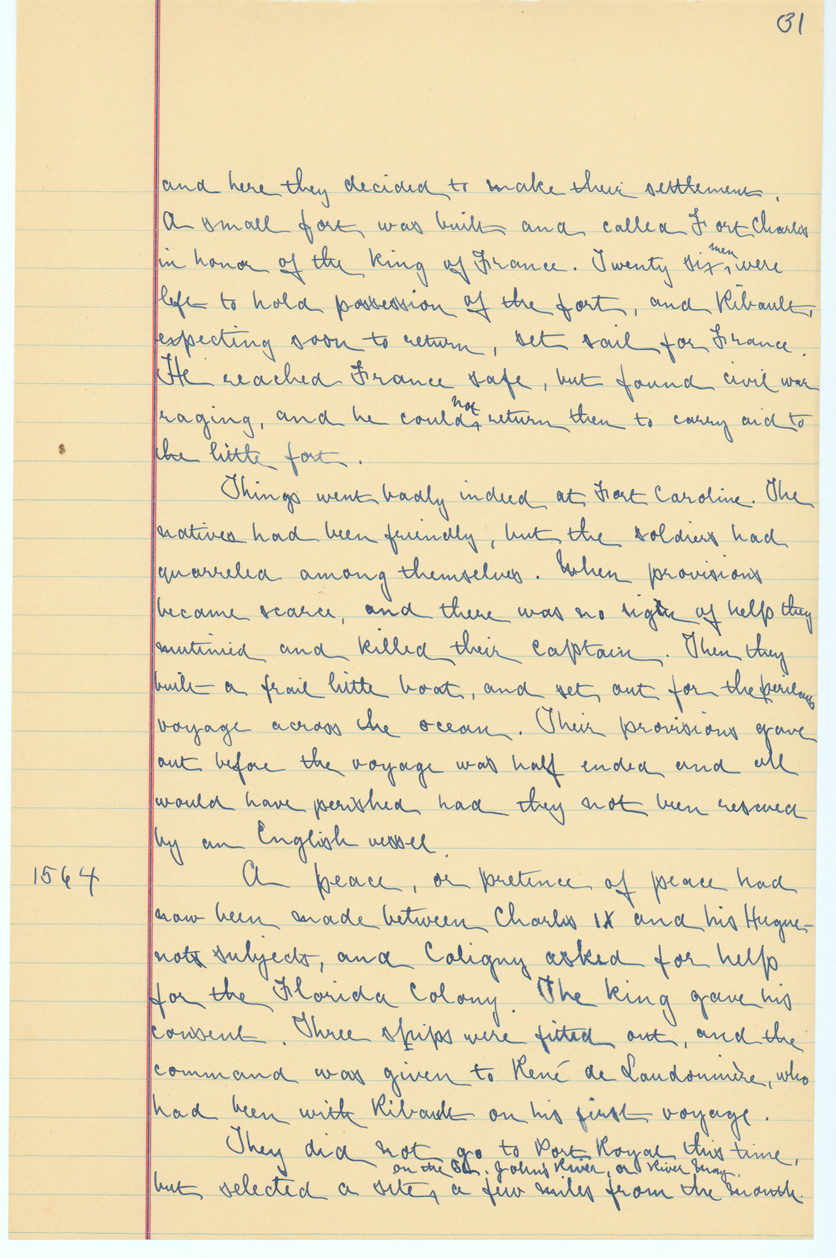 31
and here they decided to make their settlement.
A small fort was built and called Fort Charles
in honor of the King of France. Twenty six men were
left to hold possession of the fort, and Ribault,
expecting soon to return, set sail for France.
He reached France safe, but found civil war
raging, and he could not return then to carry aid to
the little fort.
Things went badly indeed at Fort Caroline. The
natives had been friendly, but the soldiers had
quarreled among themselves. When provisions
became scarce, and there was no sign of help they
mutinied and killed their captain. Then they
built a frail little boat, and set out for the perilous
voyage across the ocean. Their provisions gave
out before the voyage was half ended and all
would have perished had they not been rescued
by an English vessel.
1564 A peace, or pretence of peace had
now been made between Charles IX and his Hugue-
nots subjects, and Coligny asked for help
for the Florida Colony. The King gave his
consent. Three ships were fitted out, and the
command was given to René de Laudonnière, who
had been with Ribault on his first voyage.
They did not go to Port Royal this time,
on the St. John's River, or River May.
but selected a site, a few miles from the mouth.